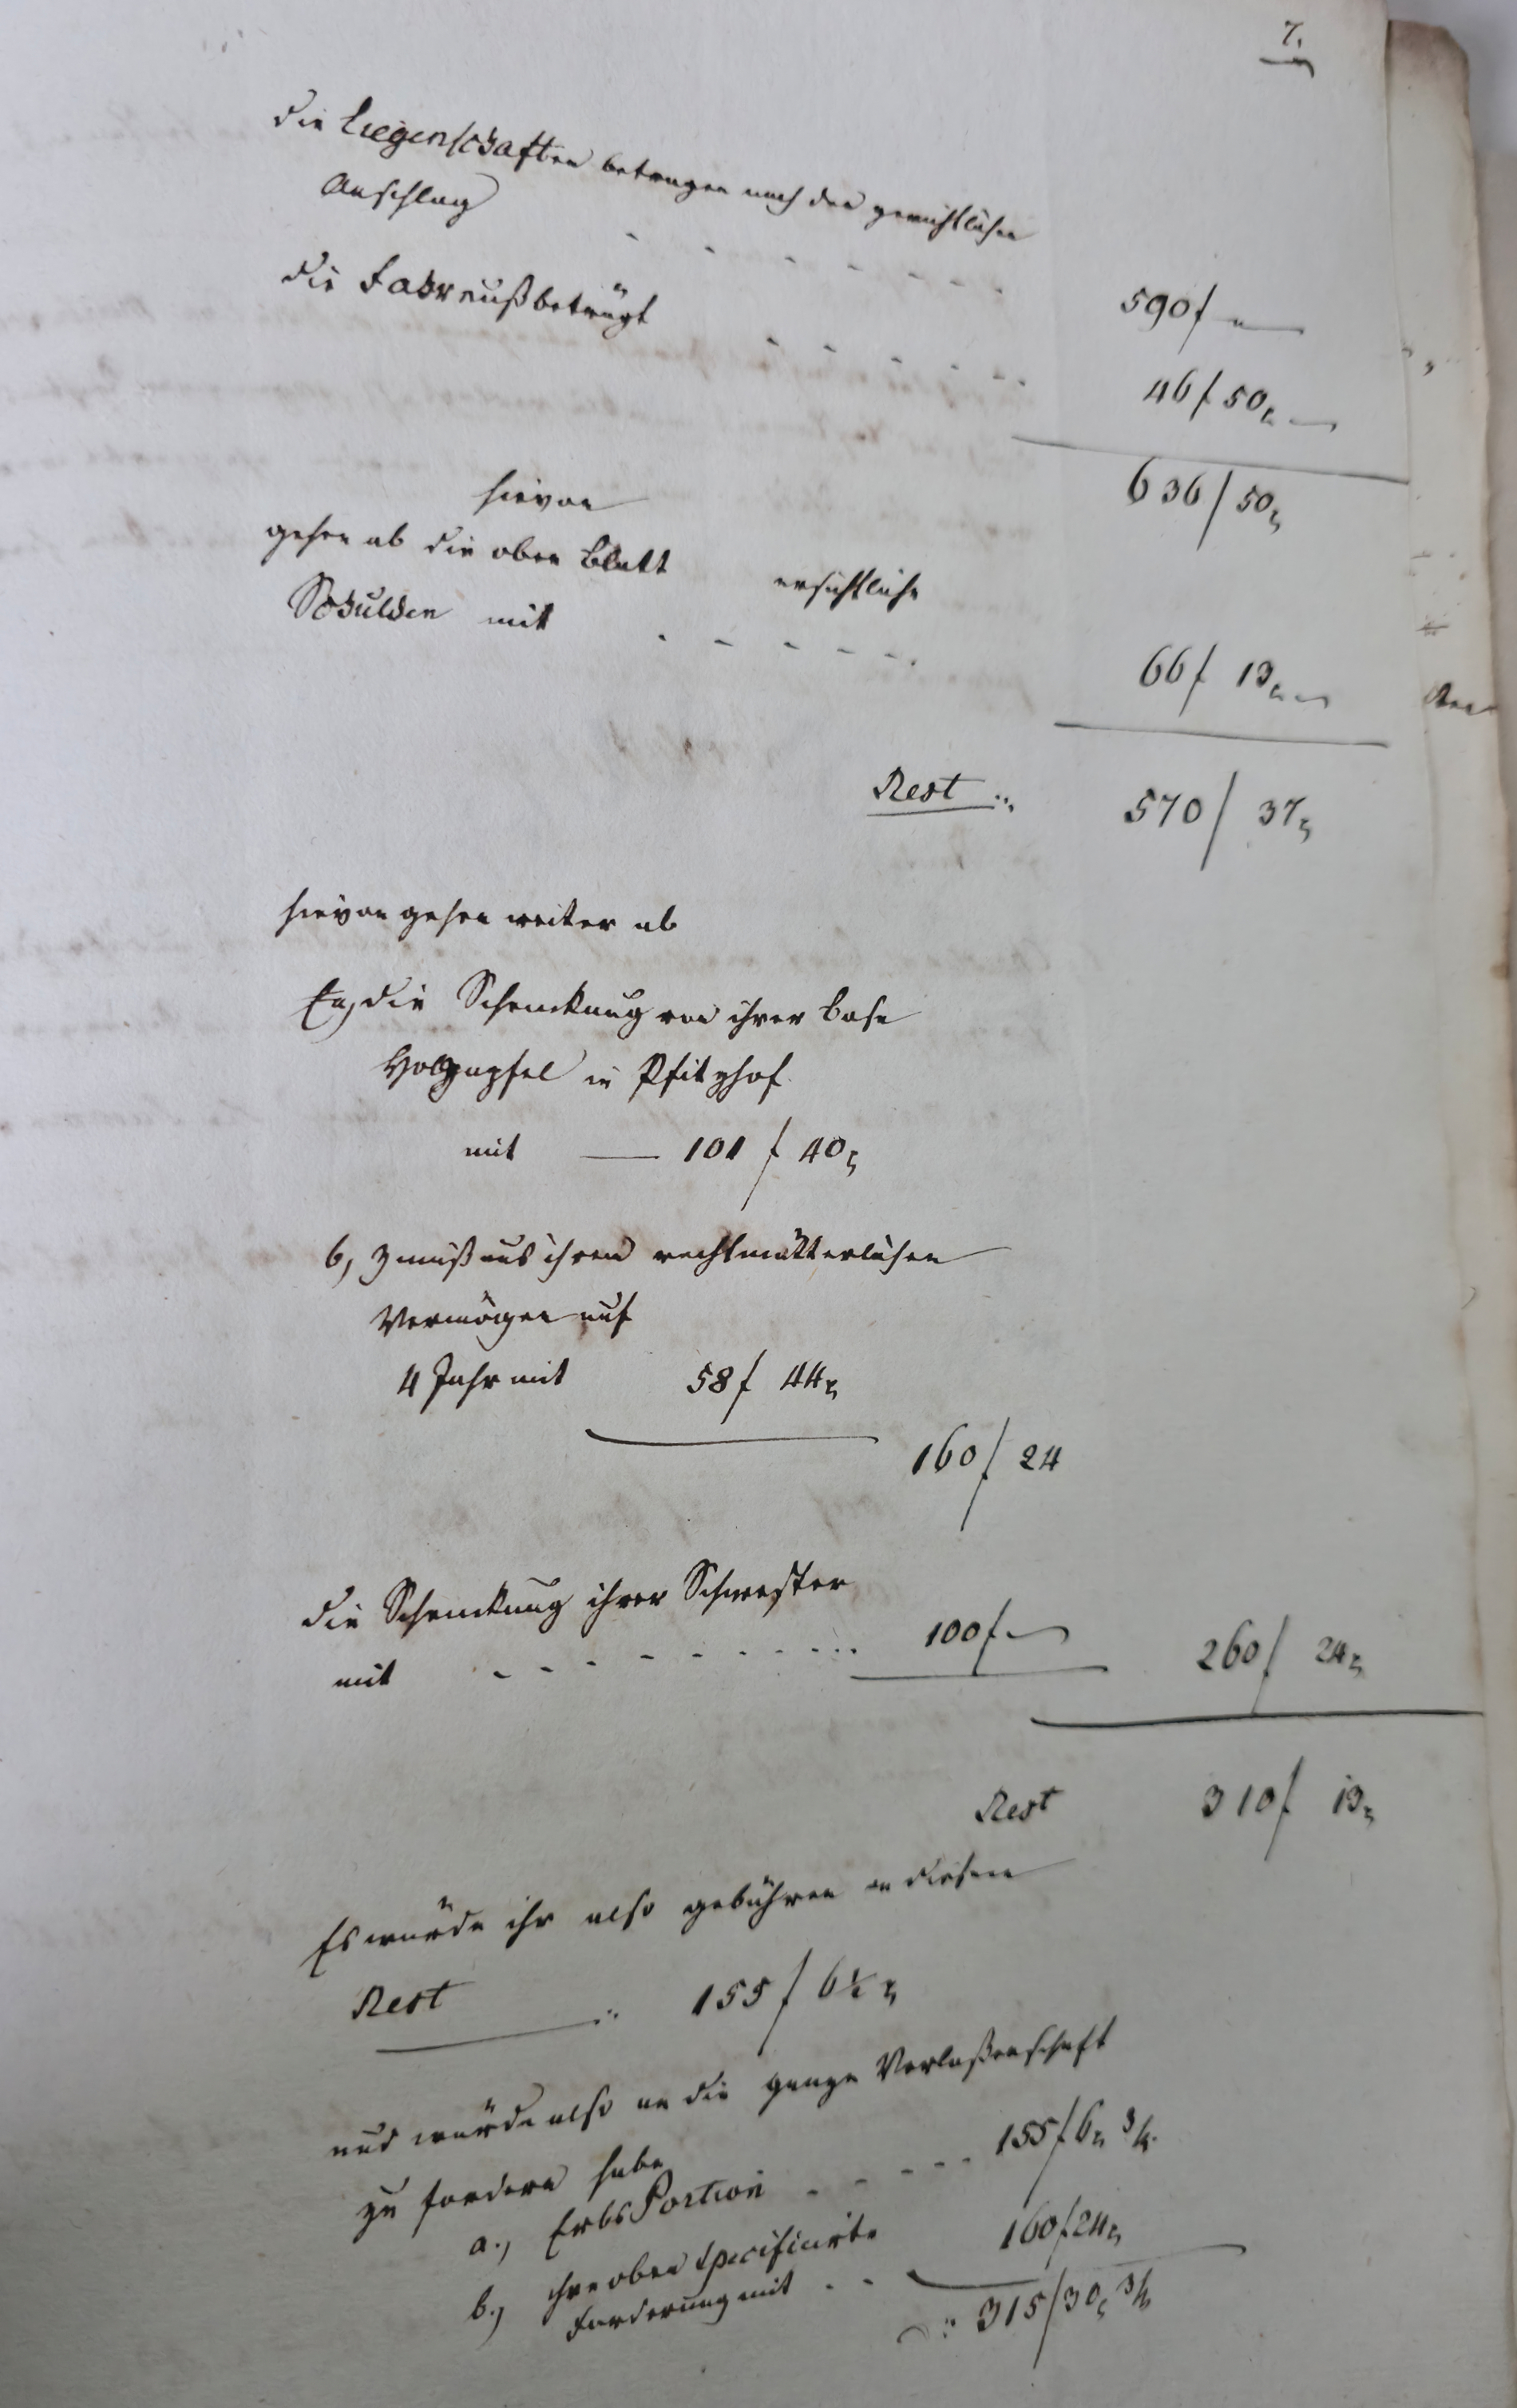 7.
die Liegenschaften betragen nach den gerichtlichen
Anschlag - - - - - - - -
590 f —
die Fahrnuß beträgt - - - - - -
46 f 50 x —
636 f 50 x
hievon
gehen ab die oben Blatt ersichtliche
Schulden mit - - - - - -
66 f 13 x
Rest ..
570 f 37 x
hievon gehen weiter ab
a, die Schenckung von ihrer Base
Holzapfel in Pfitzhof
mit — 101 f 40 x
b, Zinnß aus ihrem rechtmütterlichen
Vermögen auf
4 Jahr mit 58 f 44 x
160 f 24
die Schenckung ihrer Schwester
mit - - - - - - - - 100 f — 260 f 24 x
Rest 310 f 13 x
Es würde ihr also gebühren an diesem
Rest .. 155 f 6½ x
und würde also an die ganze Verlaßenschaft
zu fordern habe
a., Erbs Portion - - - - - 155 f 6 x ¾.
b., ihre oben specificirte
Forderung mit - - 160 f 24 x
315 f 30 x ¾